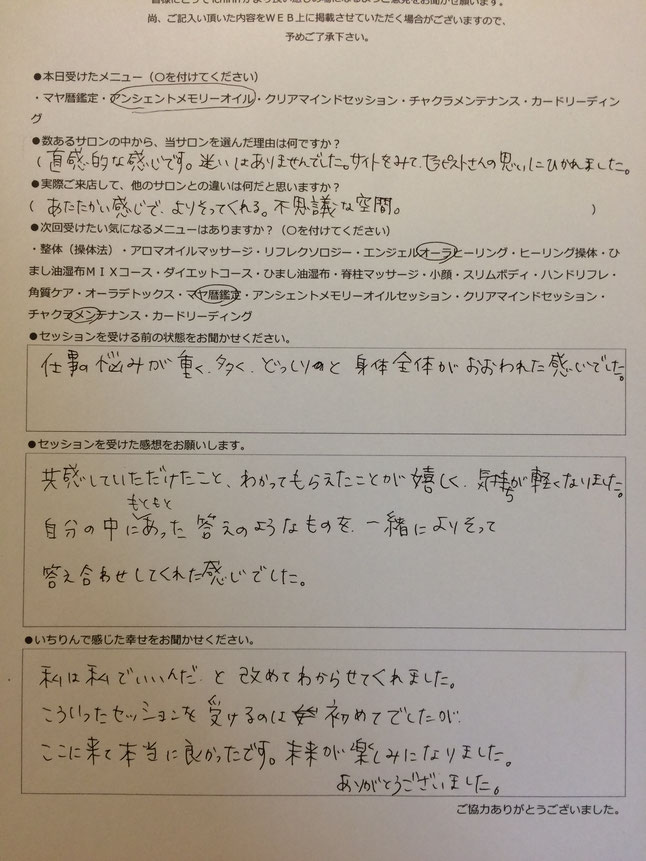 尚、ご記入い頂いた内容をＷＥＢ上に掲載させていただく場合がございますので、
予めご了承下さい。
●本日受けたメニュー（〇を付けてください）
・マヤ暦鑑定・アンシェントメモリーオイル・クリアマインドセッション・チャクラメンテナンス・カードリーディン
グ
●数あるサロンの中から、当サロンを選んだ理由は何ですか？
( 直感的な感じです。迷いはありませんでした。サイトをみて、セラピストさんの思いにひかれました。
●実際ご来店して、他のサロンとの違いは何だと思いますか？
( あたたかい感じで、よりそってくれる。不思議な空間。 )
●次回受けたい気になるメニューはありますか？（〇を付けてください）
・整体（操体法）・アロマオイルマッサージ・リフレクソロジー・エンジェルオーラヒーリング・ヒーリング操体・ひ
まし油湿布ＭＩＸコース・ダイエットコース・ひまし油湿布・脊柱マッサージ・小顔・スリムボディ・ハンドリフレ・
角質ケア・オーラデトックス・マヤ暦鑑定・アンシェントメモリーオイルセッション・クリアマインドセッション・
チャクラメンテナンス・カードリーディング
●セッションを受ける前の状態をお聞かせください。
仕事の悩みが重く、多く、どっしりと身体全体がおおわれた感じでした。
●セッションを受けた感想をお願いします。
共感していただけたこと、わかってもらえたことが嬉しく、気持ちが軽くなりました。
もともと
自分の中にあった答えのようなものを、一緒によりそって
答え合わせしてくれた感じでした。
●いちりんで感じた幸せをお聞かせください。
私は私でいいんだ、と改めてわからせてくれました。
こういったセッションを受けるのは初めてでしたが、
ここに来て本当に良かったです。未来が楽しみになりました。
ありがとうございました。
ご協力ありがとうございました。